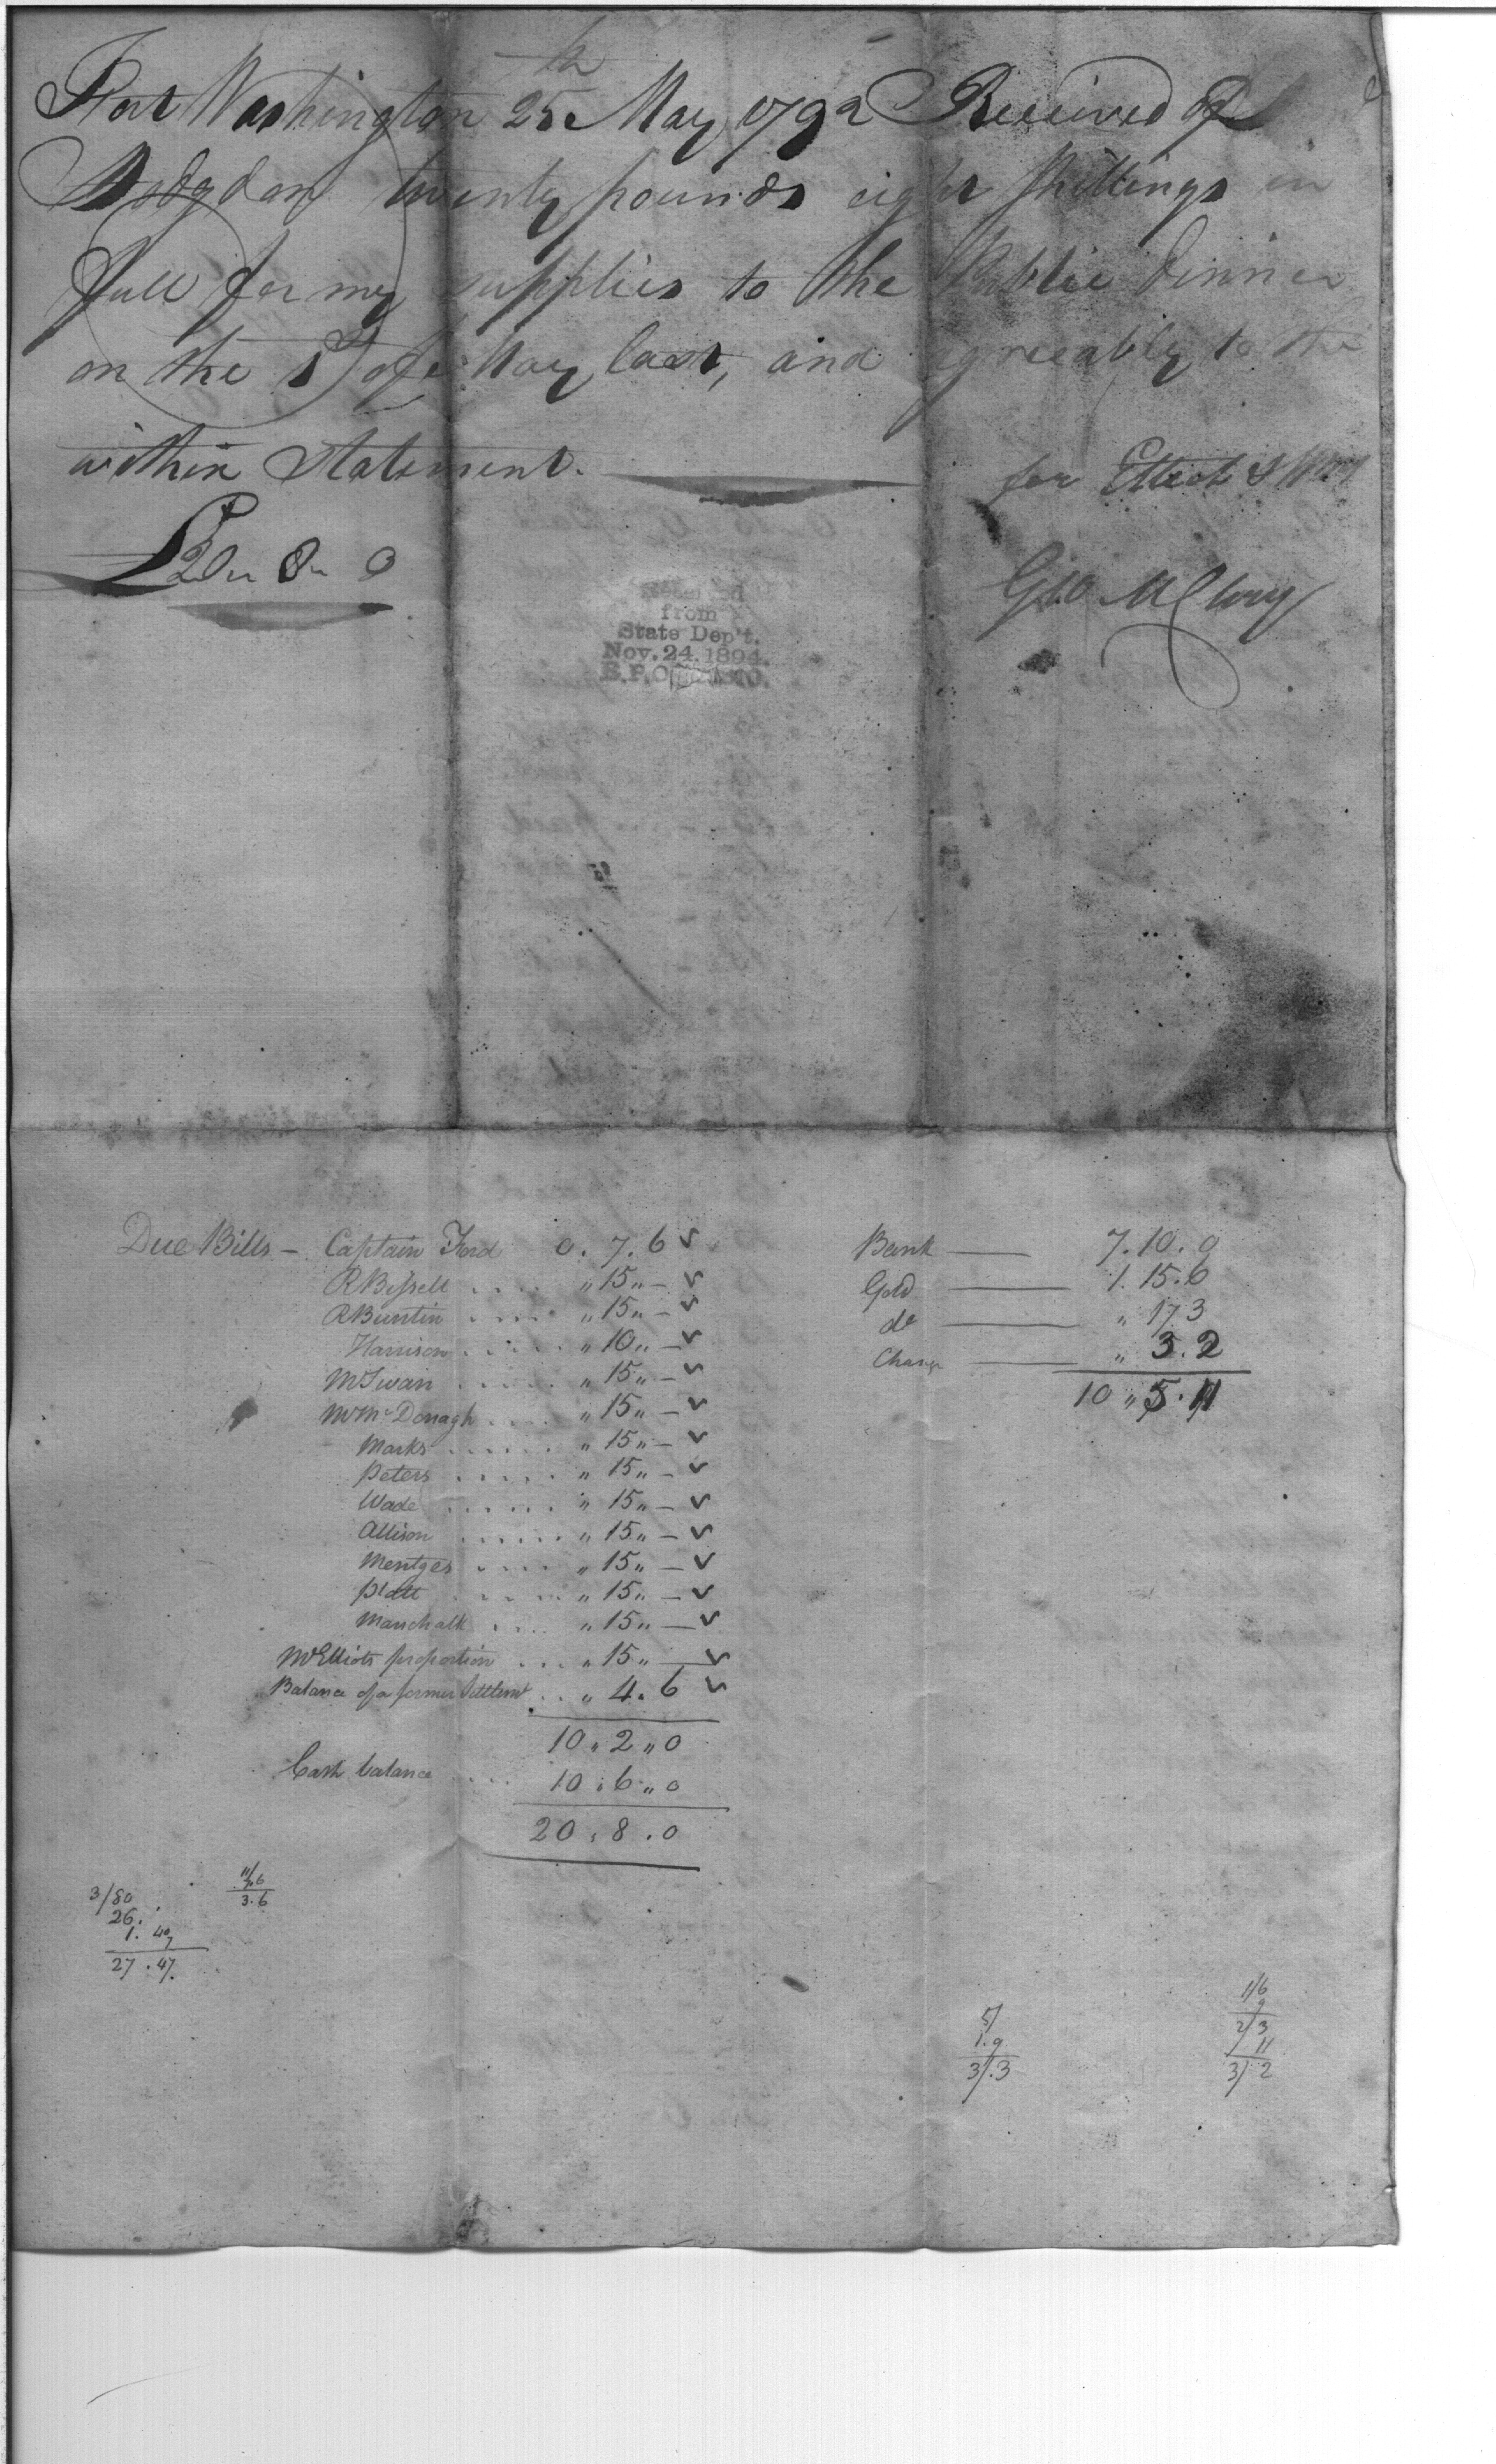 Fort Washington 25th May 1792 Received of
Hodgdon twenty pounds eight shillings in
full for my supplies to the Public dinner
on the 1st of May last, and agreeably to the
within Statement.
for Elliot &
£20 " 8 " 0
Geo
Received
from
State Dep't.
Nov. 24. 1894.
Due Bills - Captain Ford 0. 7. 6 ✓
R Bissell .... " 15 " - ✓
R Buntin .... " 15 " - ✓
Harrison ..... " 10 " - ✓
Mr Swan ..... " 15 " - ✓
Mr McDonagh .... " 15 " - ✓
Marks ...... " 15 " - ✓
Peters ..... " 15 " - ✓
Wade ...... " 15 " - ✓
Allison ...... " 15 " - ✓
Mentges .... " 15 " - ✓
Platt ..... " 15 " - ✓
Marschalk .... " 15 " - ✓
Mr Elliots proportion ... " 15 " - ✓
Balance of a former Settlemt .. " 4. 6 ✓
10 " 2 " 0
Cash balance ... 10 " 6 " 0
20 " 8 . 0
Bank — 7. 10. 9
Gold — 1. 15. 6
do — " 17. 3
Change — " 3. 2
10 " 5. 11
3/80
26.
27 . 47.
3. 6
5/
1. 9
3/. 3
1/6
9
2/3
11
3/. 2